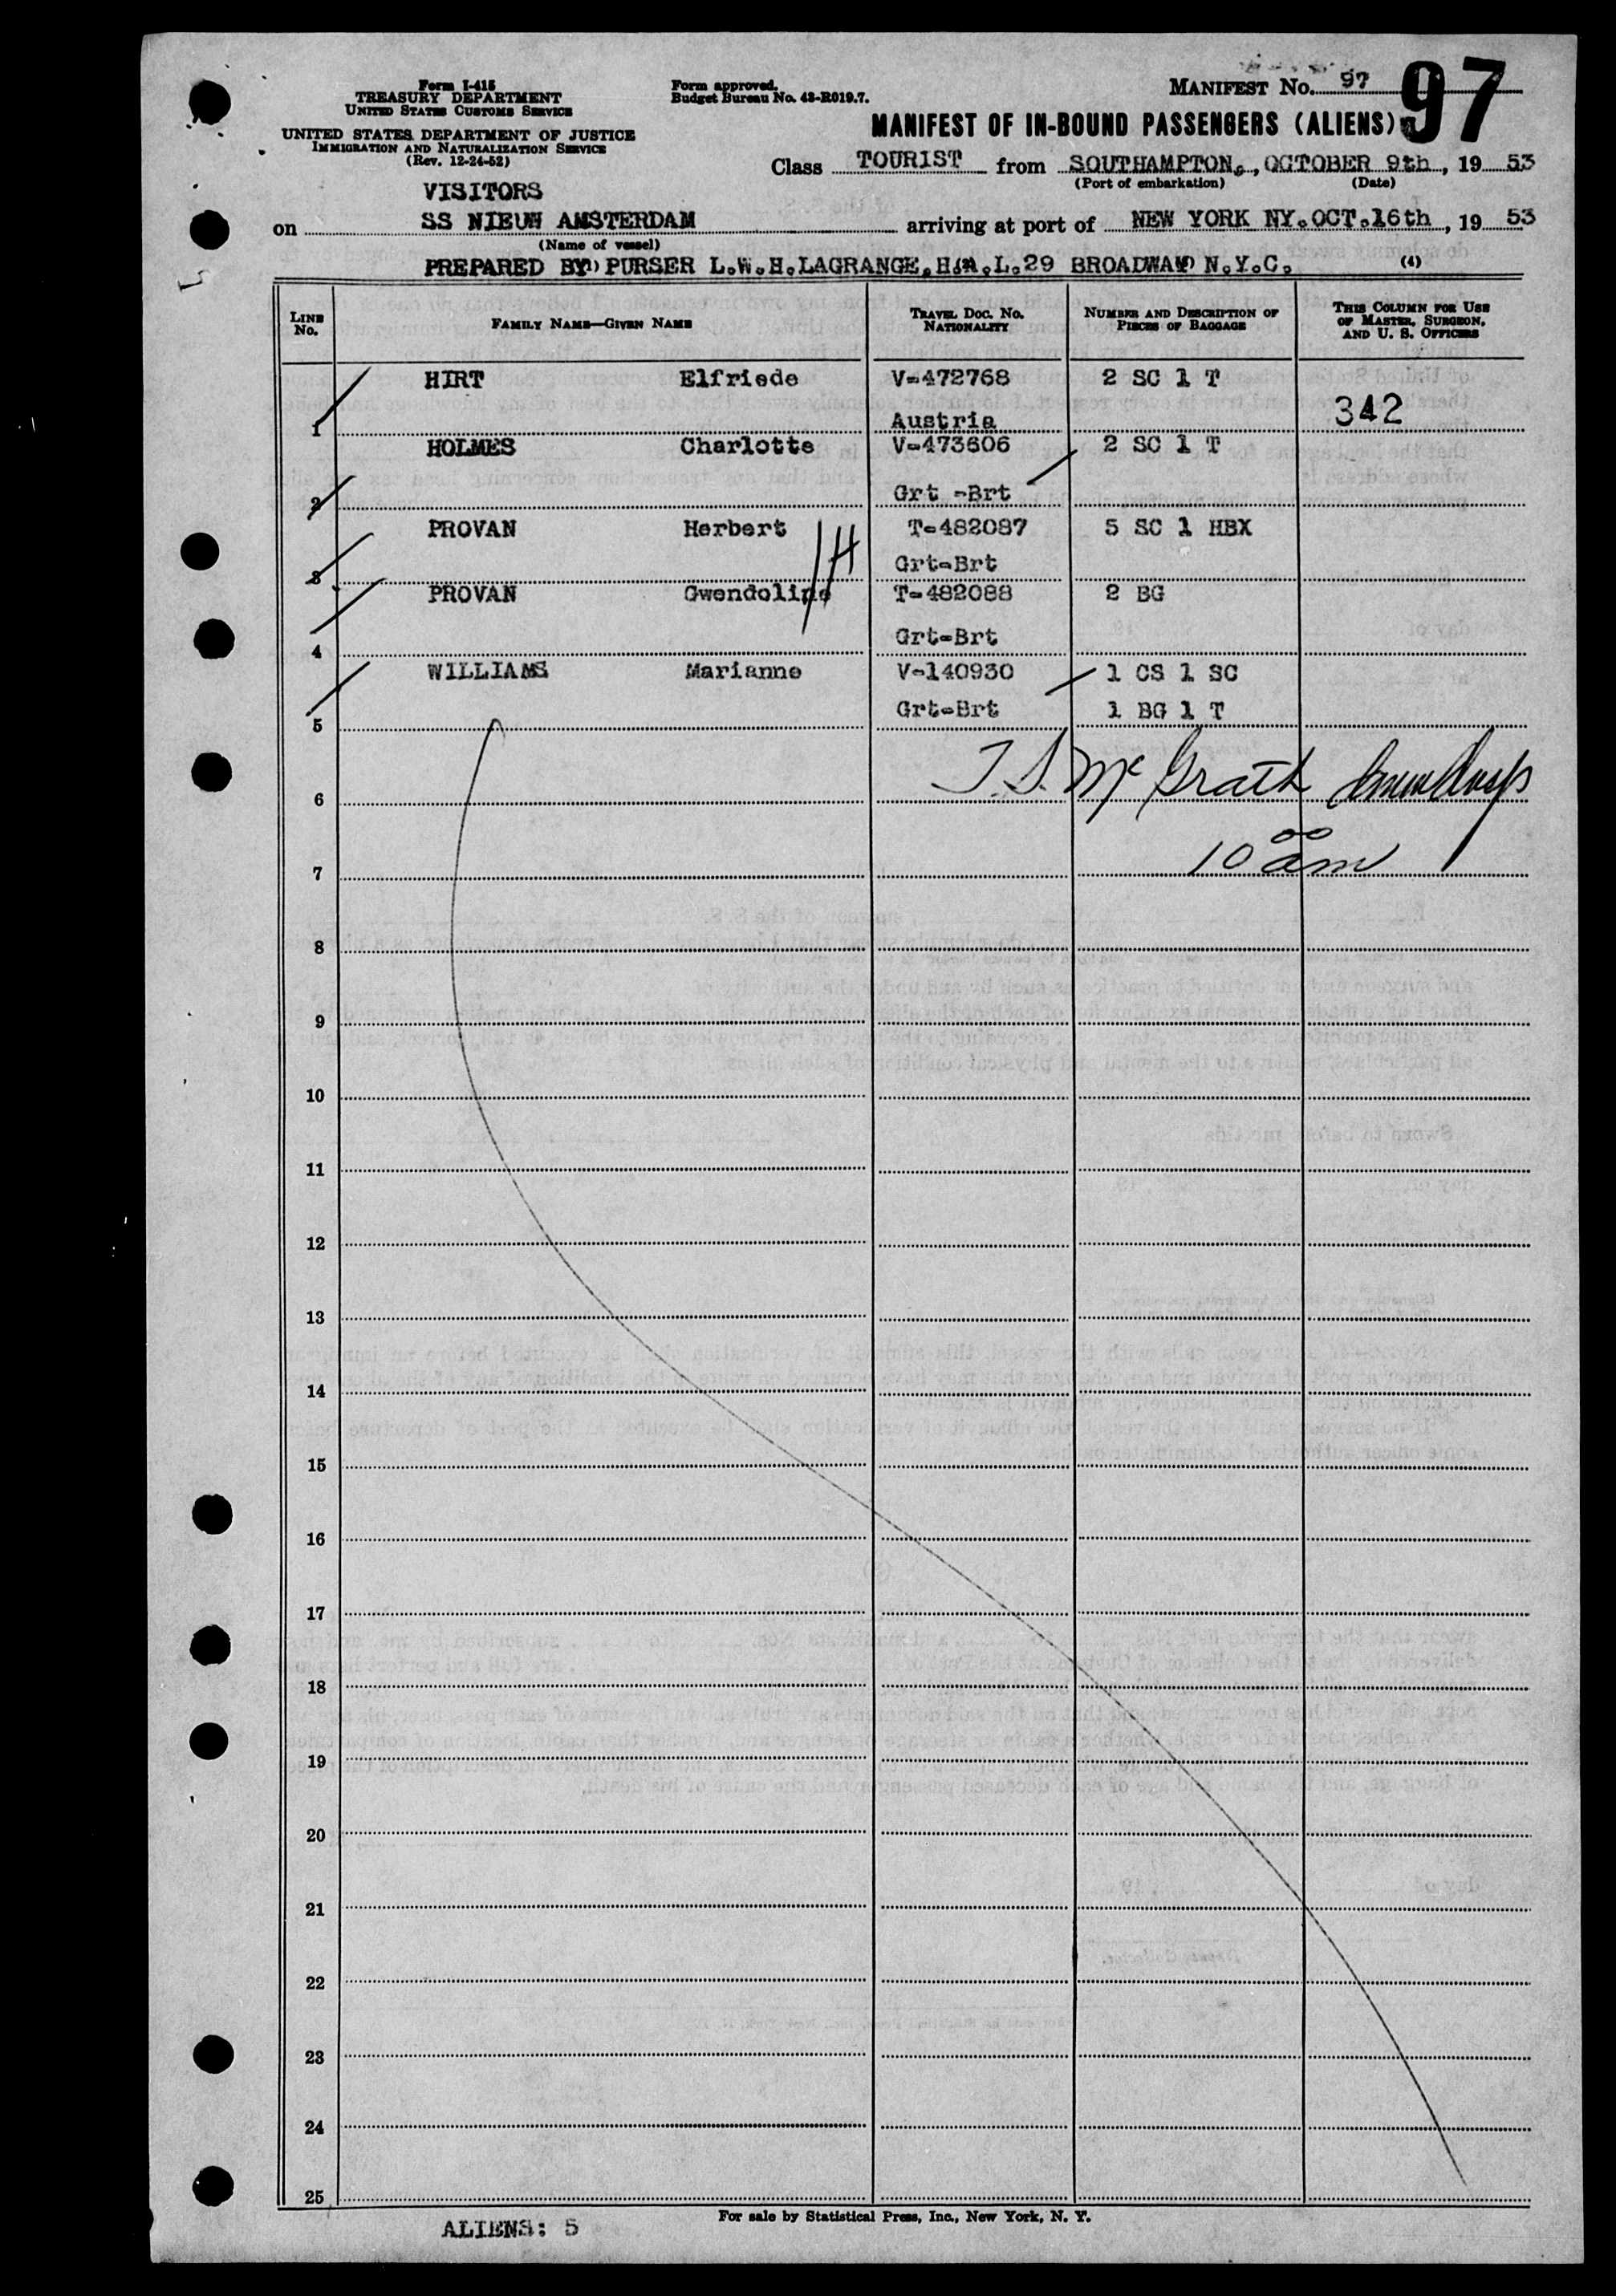 Form I-415
TREASURY DEPARTMENT
UNITED STATES CUSTOMS SERVICE
UNITED STATES DEPARTMENT OF JUSTICE
IMMIGRATION AND NATURALIZATION SERVICE
(Rev. 12-24-52)
Form approved.
Budget Bureau No. 43-R019.7.
MANIFEST No. 97
97
MANIFEST OF IN-BOUND PASSENGERS (ALIENS)
Class TOURIST from SOUTHAMPTON, OCTOBER 9th, 19 53
(Port of embarkation) (Date)
VISITORS
on SS NIEUW AMSTERDAM arriving at port of NEW YORK NY.OCT.16th, 19 53
(Name of vessel)
PREPARED BY PURSER L.W.H.LAGRANGE,H.A.L.29 BROADWAY N.Y.C. (4)
LINE No. FAMILY NAME—GIVEN NAME TRAVEL DOC. No. NATIONALITY NUMBER AND DESCRIPTION OF PIECES OF BAGGAGE THIS COLUMN FOR USE OF MASTER, SURGEON, AND U. S. OFFICERS
HIRT Elfriede V-472768 2 SC 1 T
1 Austria 342
HOLMES Charlotte V-473606 2 SC 1 T
2 Grt -Brt
PROVAN Herbert T-482087 5 SC 1 HBX
3 Grt-Brt
PROVAN Gwendoline T-482088 2 BG
4 Grt-Brt
WILLIAMS Marianne V-140930 1 CS 1 SC
5 Grt-Brt 1 BG 1 T
6 T.S. McGrath
7 10 00 am
8
9
10
11
12
13
14
15
16
17
18
19
20
21
22
23
24
25
For sale by Statistical Press, Inc., New York, N. Y.
ALIENS: 5